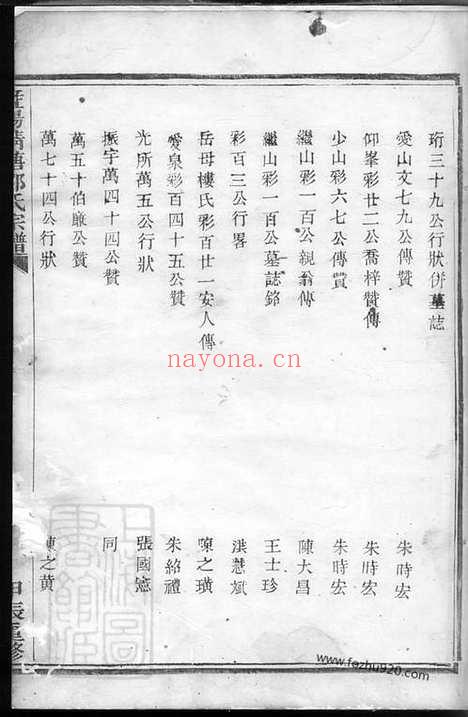 珩三十九公行狀併墓誌
愛山文七九公傳贊 朱時宏
仰峯彩廿二公喬梓贊傳 朱時宏
少山彩六七公傳贊 朱時宏
繼山彩一百公親翁傳 陳大昌
繼山彩一百公墓誌銘 王士珍
彩百三公行畧 洪慧斌
岳母樓氏彩百廿一安人傳 陳之璜
愛泉彩四十五公贊 朱紹禮
光所萬五公行狀 張國憲
振宇萬四十四公贊 同
萬五十伯雝公贊
萬七十四公行狀 陳之黄
氏宗譜
甲辰重修
nayona.cn
www.fozhu920.com